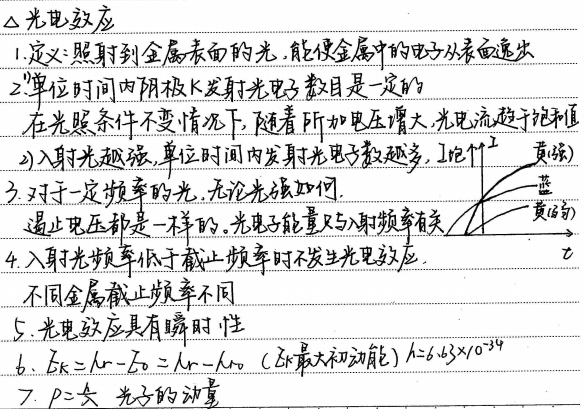 △光电效应
1.定义:照射到金属表面的光,能使金属中的电子从表面逸出
2.1)单位时间内阴极K发射光电子数目是一定的
在光照条件不变情况下,随着所加电压增大,光电流趋于饱和值
2)入射光越强,单位时间内发射光电子数越多,I饱↑
I
黄(强)
蓝
黄(弱)
t
3.对于一定频率的光,无论光强如何.
遏止电压都是一样的。光电子能量只与入射频率有关
4.入射光频率低于截止频率时不发生光电效应.
不同金属截止频率不同
5.光电效应具有瞬时性
6.Ek=hν-E0=hν-hν0 (Ek最大初动能) h=6.63×10^-34
7.P=h/λ 光子的动量